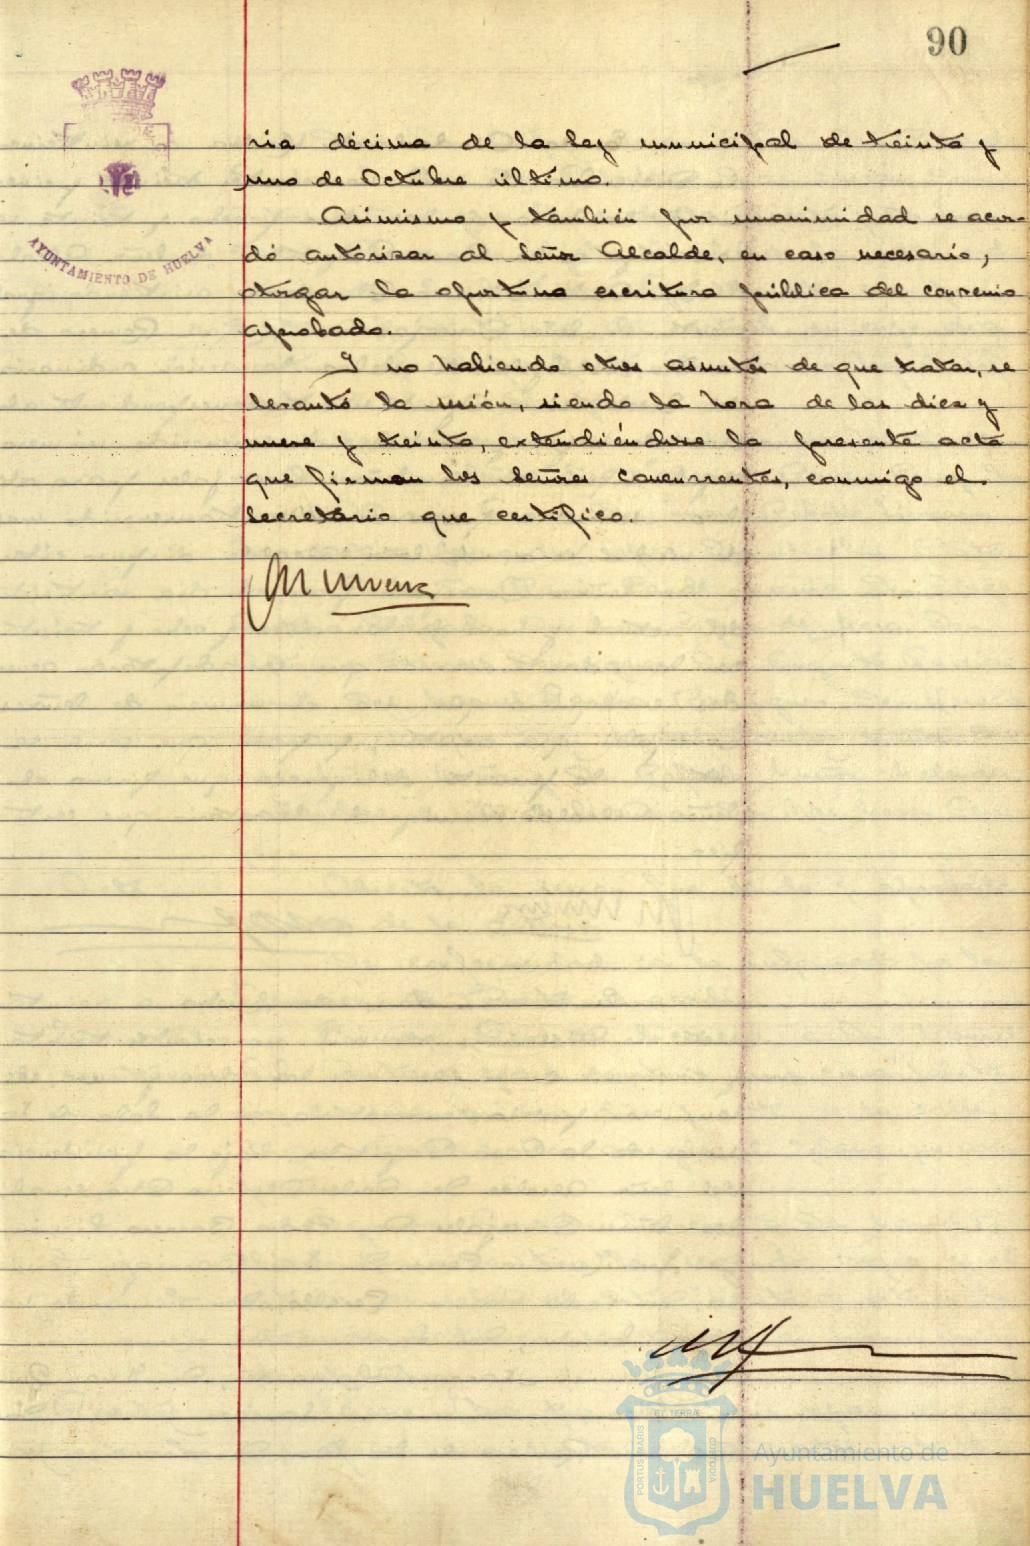 90
AYUNTAMIENTO DE HUELVA
ria décima de la ley municipal de treinta y
uno de Octubre último.
Asimismo y también por unanimidad se acor-
dó autorizar al Señor Alcalde, en caso necesario,
otorgar la oportuna escritura pública del convenio
aprobado.
Y no habiendo otros asuntos de que tratar, se
levantó la sesión, siendo la hora de las diez y
nueve y treinta, extendiéndose la presente acta
que firman los Señores concurrentes, conmigo el
Secretario que certifico.
PORTUS MARIS
ET TERRÆ
CUSTODIA
Ayuntamiento de
HUELVA